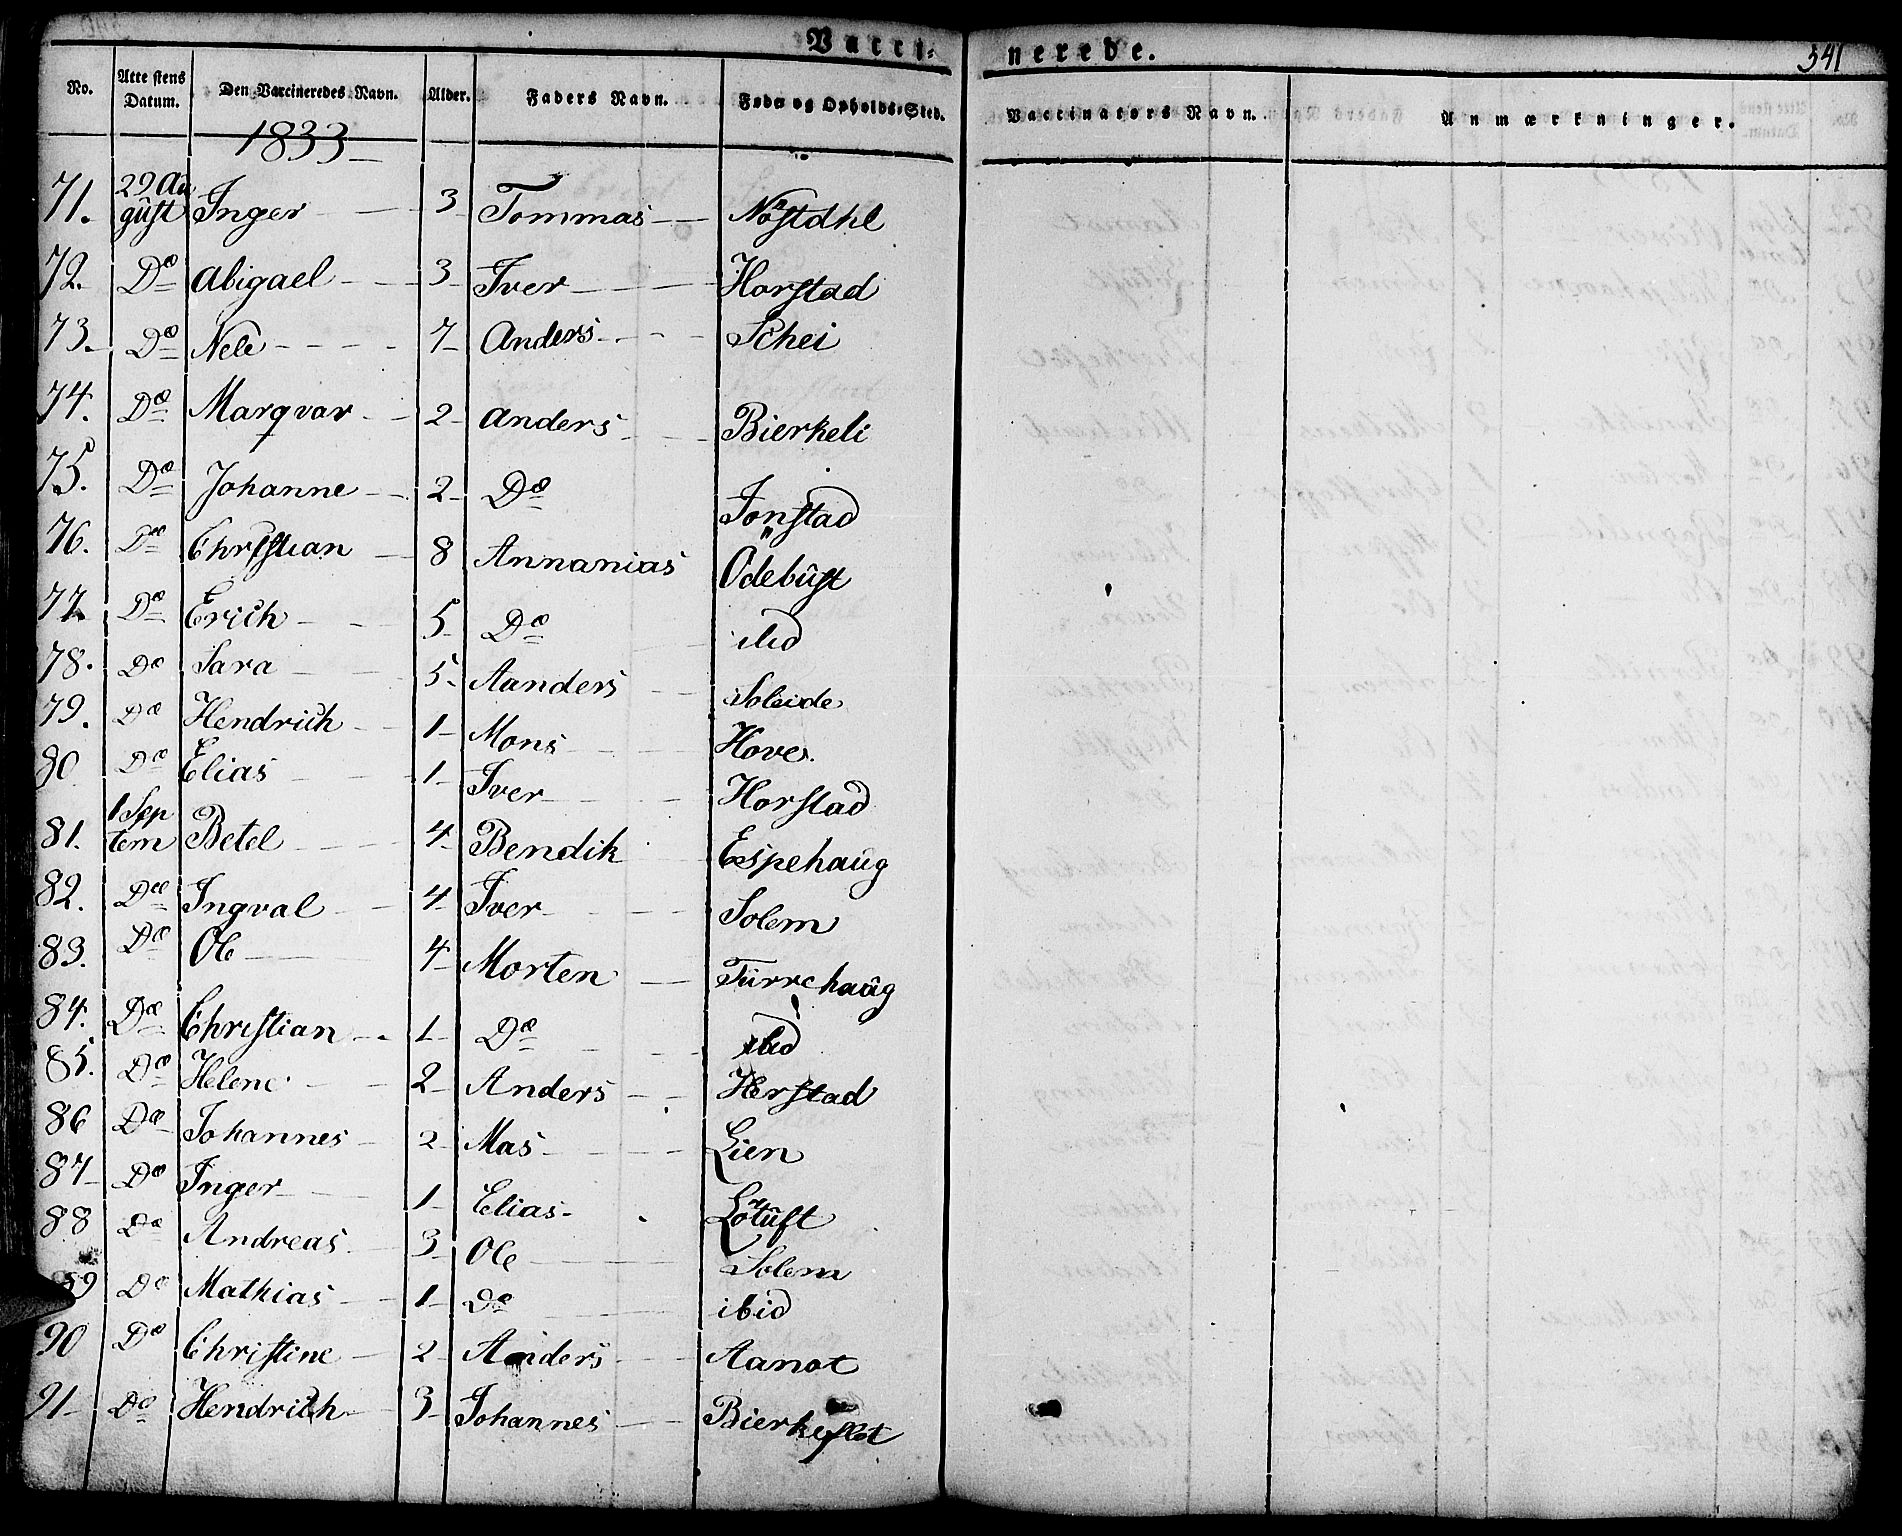 Vacci-
nerede.
341
No. Atte stens Datum. Den Vaccineredes Navn. Alder. Faders Navn. Føde og Opholds-Sted. Vaccinators Navn. Anmærkninger.
1833
71. 29 Au gust Inger 3 Tommas Nöstdhl
72. Do Abigael 3 Iver Horstad
73. Do Nele 7 Anders Schei
74. Do Marqvar 2 Anders Bierkeli
75. Do Johanne 2 Do Jonstad
76. Do Christian 8 Annanias Ödebust
77. Do Erich 5 Do ibid
78. Do Sara 5 Aanders Soleide
79. Do Hendrich 1 Mons Hove
80 Do Elias 1 Iver Horstad
81. 1 Sep tem Betel 4 Bendik Espehaug
82. Do Ingval 4 Iver Solem
83. Do Ole 4 Morten Turrehaug
84. Do Christian 1 Do ibid
85. Do Helene 2 Anders Herstad
86 Do Johannes 2 Mas Lien
87 Do Inger 1 Elias Lötuft
88 Do Andreas 3 Ole Solem
89 Do Mathias 1 Do ibid
90 Do Christine 2 Anders Aanot
91 Do Hendrich 3 Johannes Bierkeflot